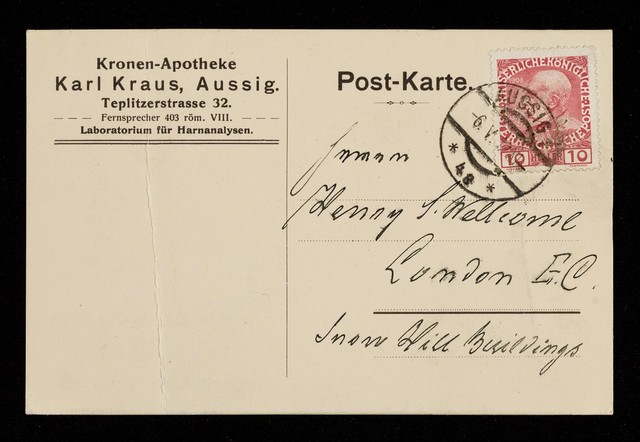 Kronen-Apotheke
Karl Kraus, Aussig.
Teplitzerstrasse 32.
Fernsprecher 403 röm. VIII.
Laboratorium für Harnanalysen.
Post-Karte.
AUSSIG
6. V.
* 4a *
10 10
Herrn
Henry S. Wellcome
London E.C.
Snow Hill Buildings